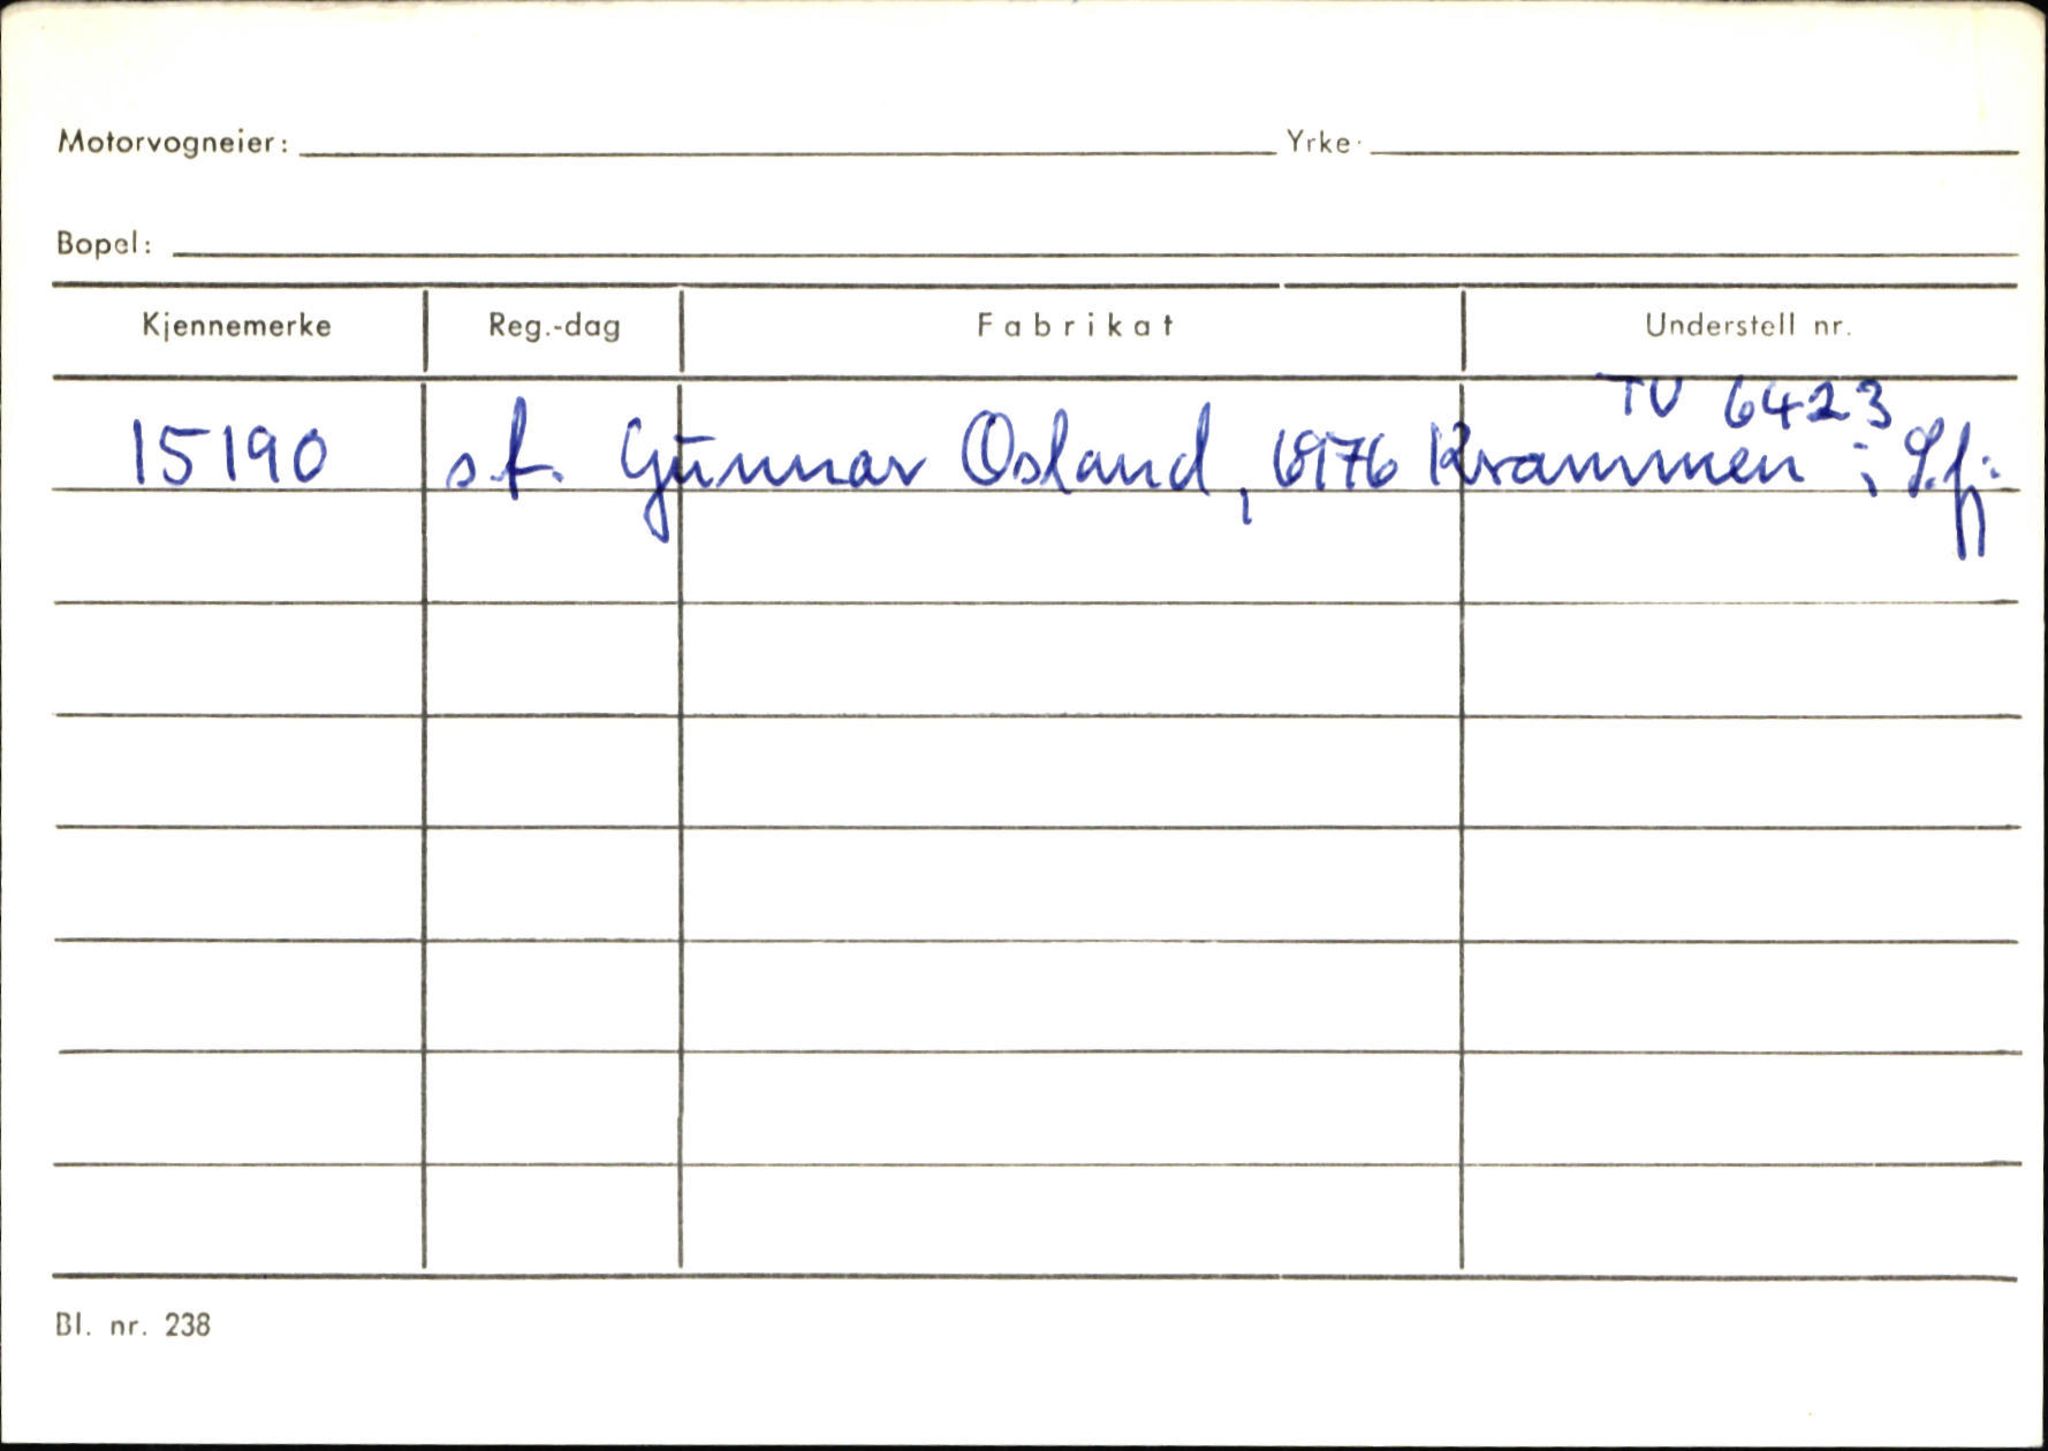 Motorvogneier: Yrke.
Bopel:
Kjennemerke Reg.-dag Fabrikat Understell nr.
TU 6423
15190 s.f. Gunnar Osland, 6976 Krammen i S.fj.
Bl. nr. 238